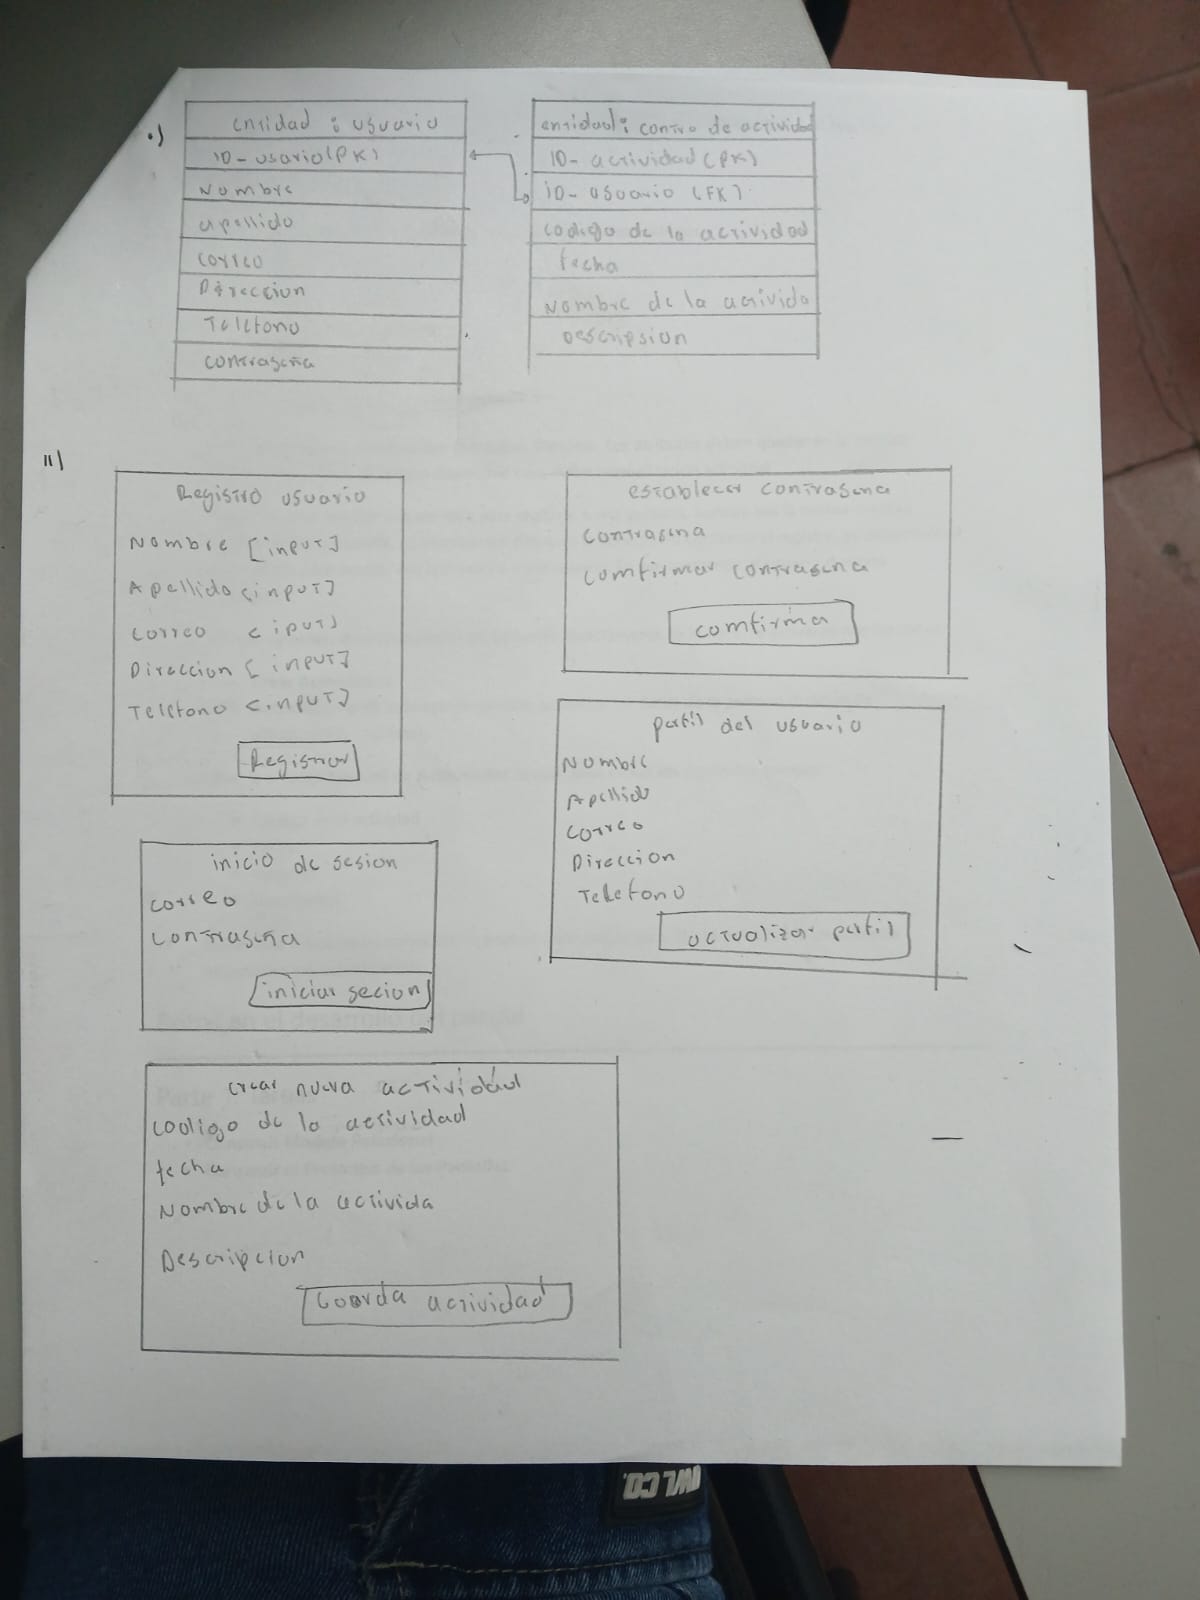 .)
entidad : usuario
ID- usario(PK)
Nombre
apellido
correo
Direccion
Telefono
contraseña
entidad: contro de actividad
ID- actividad (PK)
ID- usuario (FK)
codigo de la actividad
fecha
Nombre de la activida
Descripsion
11)
Registro usuario
Nombre [input]
Apellido <input]
Correo < iput]
Direccion [ input]
Telefono <input]
Registrar
establecer contrasena
contrasena
comfirmar contrasena
comfirma
perfil del usuario
Nombre
Apellido
correo
Direccion
Telefono
actualizar perfil
inicio de sesion
correo
contraseña
iniciar secion
crear nueva actividad
codigo de la actividad
fecha
Nombre de la activida
Descripcion
Guarda actividad
OWL CO.